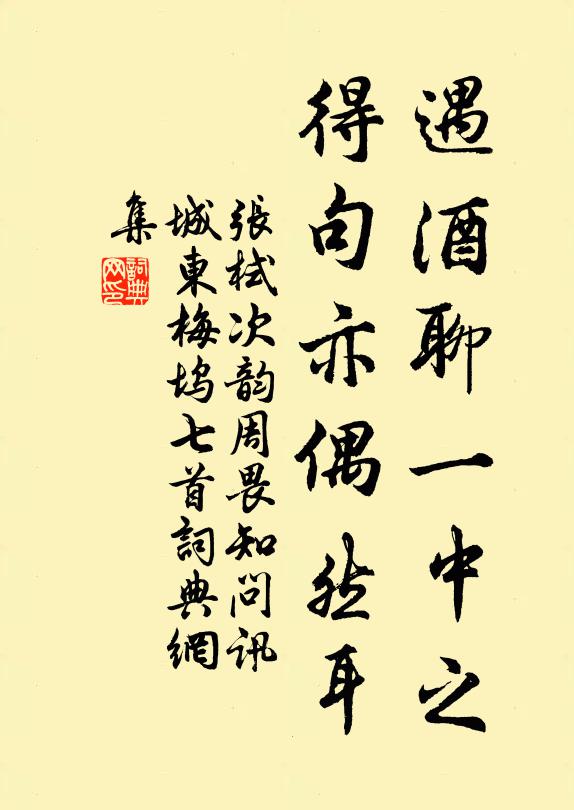 遇酒聊一中之
得句亦偶然耳
張栻次韵周畏知问讯
城東梅坞七首詞典網
集
詞典
网印